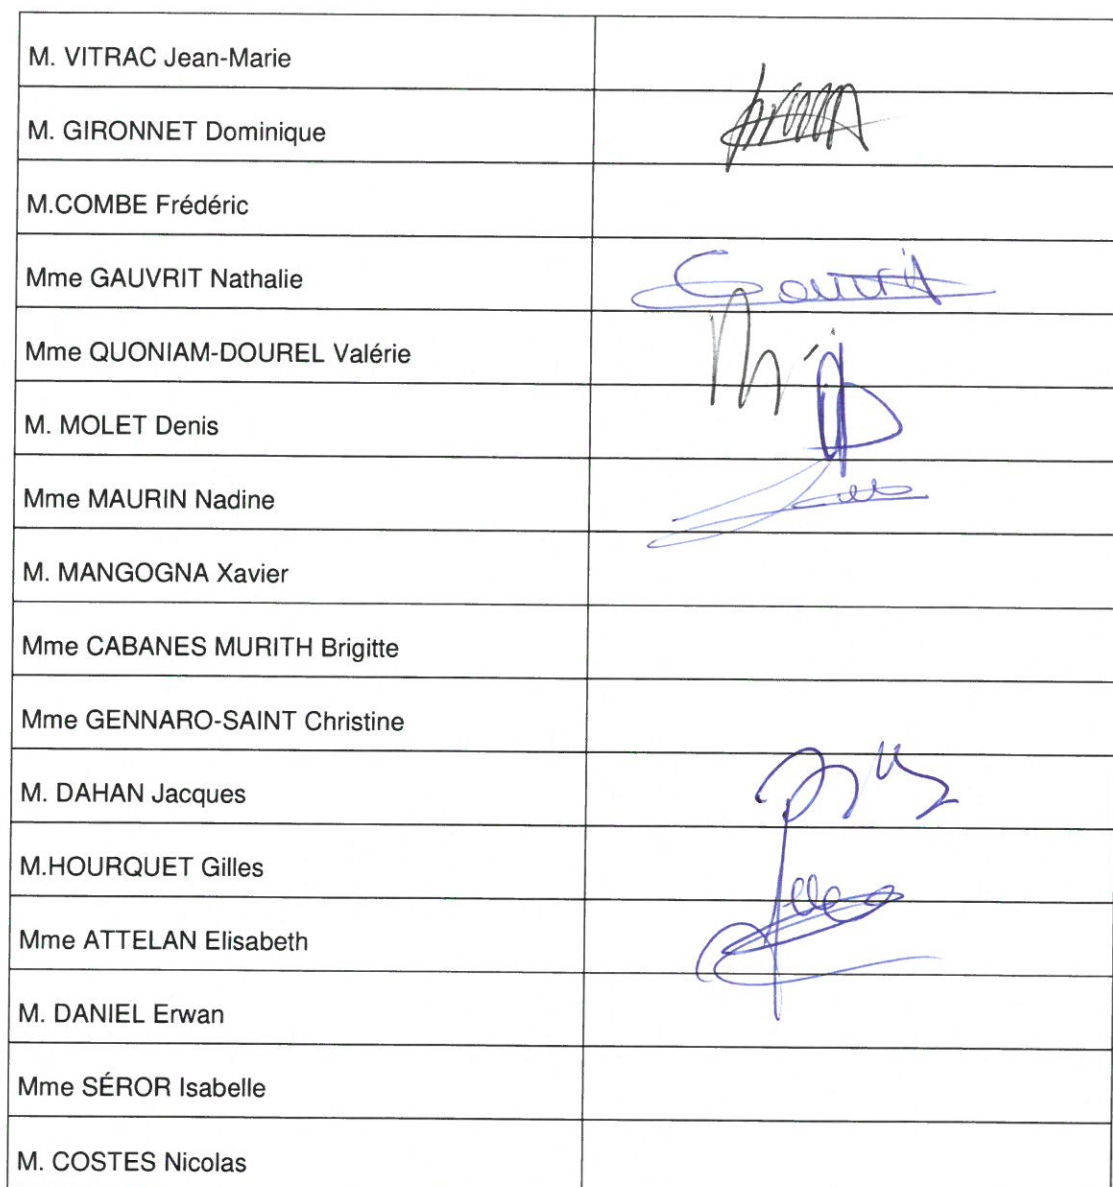 M. VITRAC Jean-Marie
M. GIRONNET Dominique
M.COMBE Frédéric
Mme GAUVRIT Nathalie
Gauvrit
Mme QUONIAM-DOUREL Valérie
M. MOLET Denis
Mme MAURIN Nadine
M. MANGOGNA Xavier
Mme CABANES MURITH Brigitte
Mme GENNARO-SAINT Christine
M. DAHAN Jacques
M.HOURQUET Gilles
Mme ATTELAN Elisabeth
M. DANIEL Erwan
Mme SÉROR Isabelle
M. COSTES Nicolas